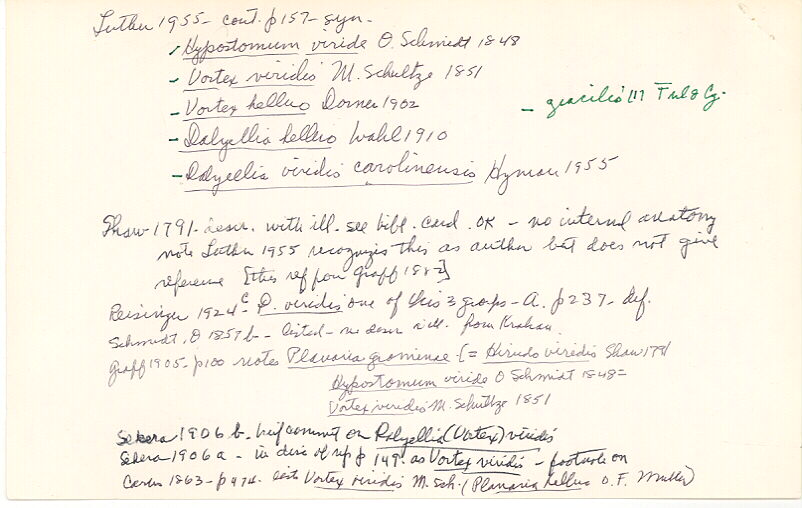 Luther 1955 - cont. p 157 - syn.
- Hypostomum viride O. Schmidt 1848
- Vortex viridis M. Schultze 1851
- Vortex helluo Dorner 1902
- gracilis
- Dalyellia helluo Wahl 1910
- Dalyellia viridis carolinensis Hyman 1955
Shaw 1791 - descr. with ill. see bibl. card. OK - no internal anatomy
note Luther 1955 recognizes this as author but does not give
reference [this ref from Graff 1882]
Reisinger 1924c - D. viridis one of his 3 groups - A. p 237 - def.
Schmidt, O 1857b - listed - no descr n ill. from Krakau.
Graff 1905 - p100 notes Planaria graminea (= Hirudo viridis Shaw 1791
Hypostomum viride O Schmidt 1848 =
Vortex viridis M. Schultze 1851
Sekera 1906 b. brief comment on Dalyellia (Vortex) viridis
Sekera 1906 a - in disc of rep p 149. as Vortex viridis - footnote on
Carus 1863 - p 474. lists Vortex viridis M. Sch. (Planaria helluo O. F. Müller)